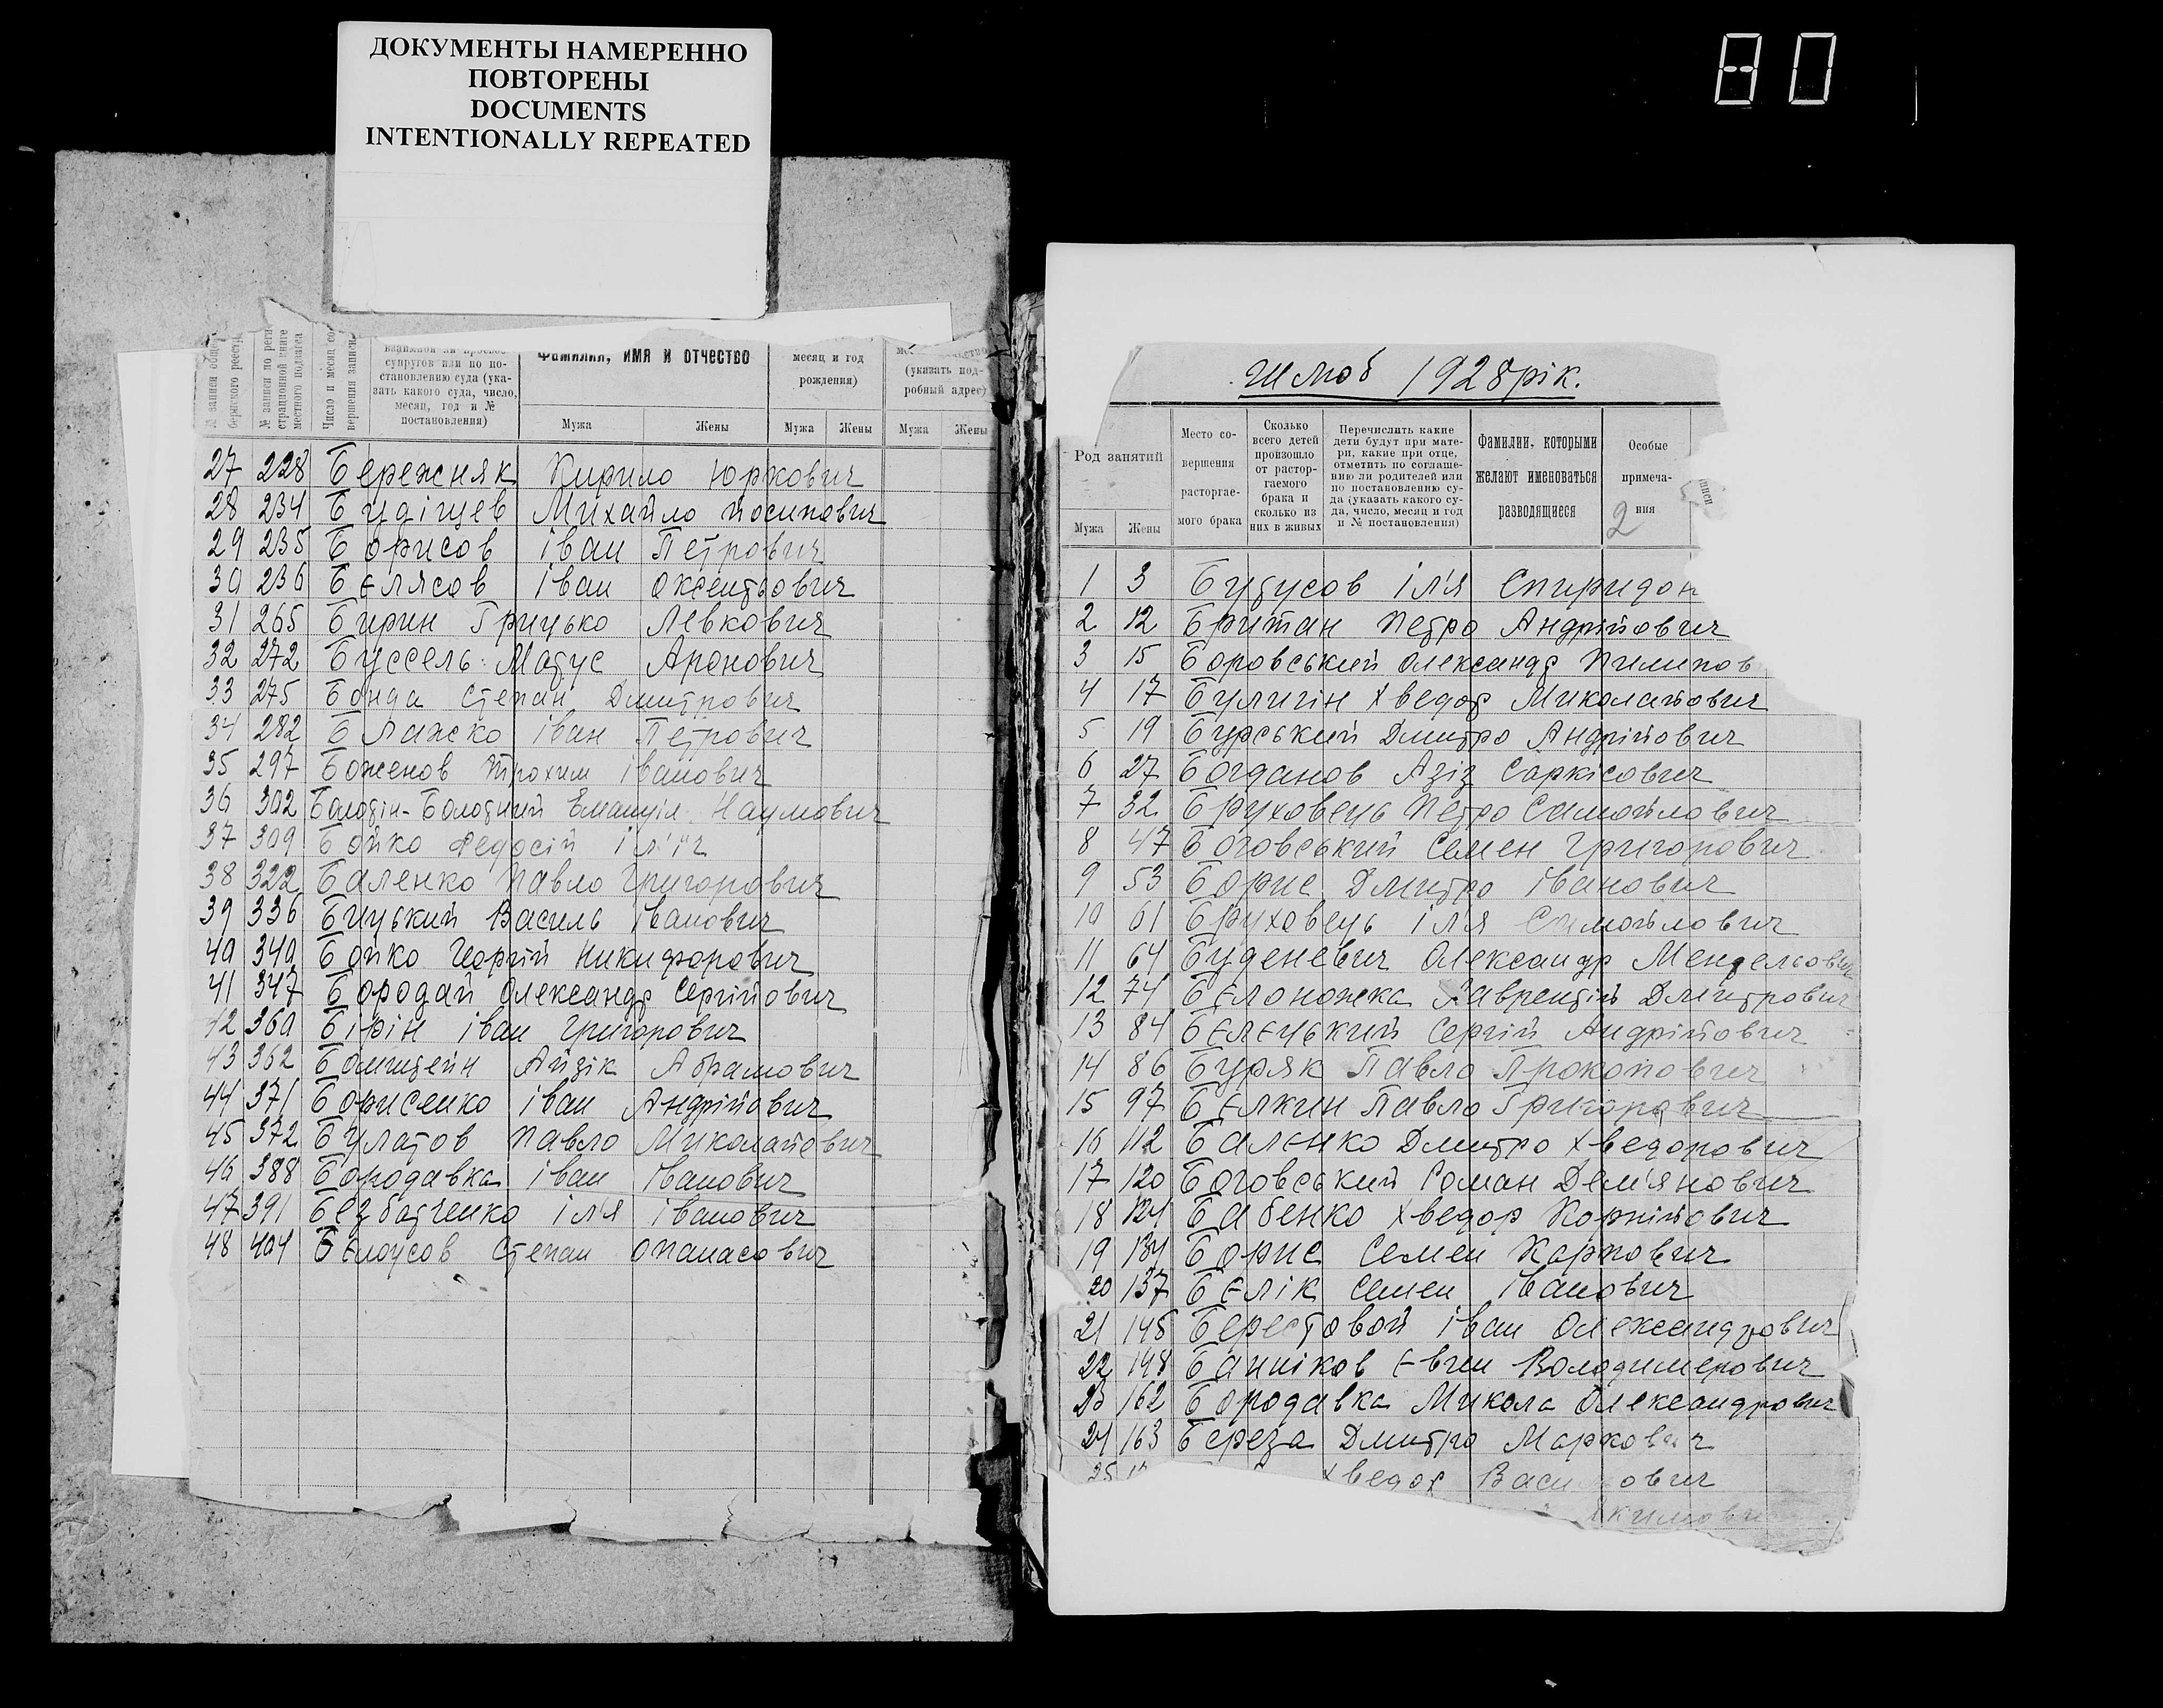 ДОКУМЕНТЫ НАМЕРЕННО
ПОВТОРЕНЫ
DOCUMENTS
INTENTIONALLY REPEATED
80
супругов или по по-
становлению суда (ука-
зать какого суда, число,
месяц, год и №
постановления)
Фамилия, имя и отчество
месяц и год
рождения)
(указать под-
робный адрес)
Мужа Жены Мужа Жены Мужа Жены
27 228 Бережняк Кирило Юркович
28 234 Михайло Йосипович
29 235 Борисов Іван Петрович
30 236 Бєлясов Іван Оксентьович
31 265 Бирин Грицько Левкович
32 272 Буссель Матус Аронович
33 275 Бонда Степан Дмитрович
34 282 Блажко Іван Петрович
35 297 Боженов Трохим Іванович
36 302 Болотін-Болотний Емануіл Наумович
37 309 Бойко Федосій Ілліч
38 322 Баленко Павло Григорович
39 336 Бицький Василь Іванович
40 340 Бойко Георгій Никифорович
41 347 Бородай Олександр Сергійович
42 360 Бірін Іван Григорович
43 362 Бомштейн Айзік Абрамович
44 371 Борисенко Іван Андрійович
45 372 Булатов Павло Миколайович
46 388 Бородавка Іван Іванович
47 391 Безбатченко Ілля Іванович
48 404 Бєлоусов Степан Опанасович
Шлюб 1928 рік.
Род занятий
Мужа Жены
Место со-
вершения
расторгае-
мого брака
Сколько
всего детей
произошло
от растор-
гаемого
брака и
сколько из
них в живых
Перечислить какие
дети будут при мате-
ри, какие при отце,
отметить по соглаше-
нию ли родителей или
по постановлению су-
да (указать какого су-
да, число, месяц и год
и № постановления)
Фамилии, которыми
желают именоваться
разводящиеся
Особые
примеча-
ния
2
1 3 Бутусов Ілля Спиридон
2 12 Британ Петро Андрійович
3 15 Боровський Олександр Пилипов
4 17 Булигін Хведор Миколайович
5 19 Бурський Дмитро Андрійович
6 27 Богданов Азіз Саркісович
7 32 Бруховець Петро Самойлович
8 47 Боговський Семен Григорович
9 53 Борис Дмитро Іванович
10 61 Бруховець Ілля Самойлович
11 64 Буденевич Олександр Мендельович
12 74 Бєлоножка Лаврентій Дмитрович
13 84 Бєлєцький Сергій Андрійович
14 86 Буряк Павло Прокопович
15 97 Бєлкин Павло Григорович
16 112 Балєнко Дмитро Хведорович
17 120 Боговський Роман Дем'янович
18 124 Бабенко Хведор Корнійович
19 134 Борис Семен Карпович
20 137 Бєлік Семен Іванович
21 145 Берестовой Іван Олександрович
22 148 Банніков Євген Володимерович
23 162 Бородавка Микола Олександрович
24 163 Береза Дмитро Маркович
25 Хведор Васильович
Якимови